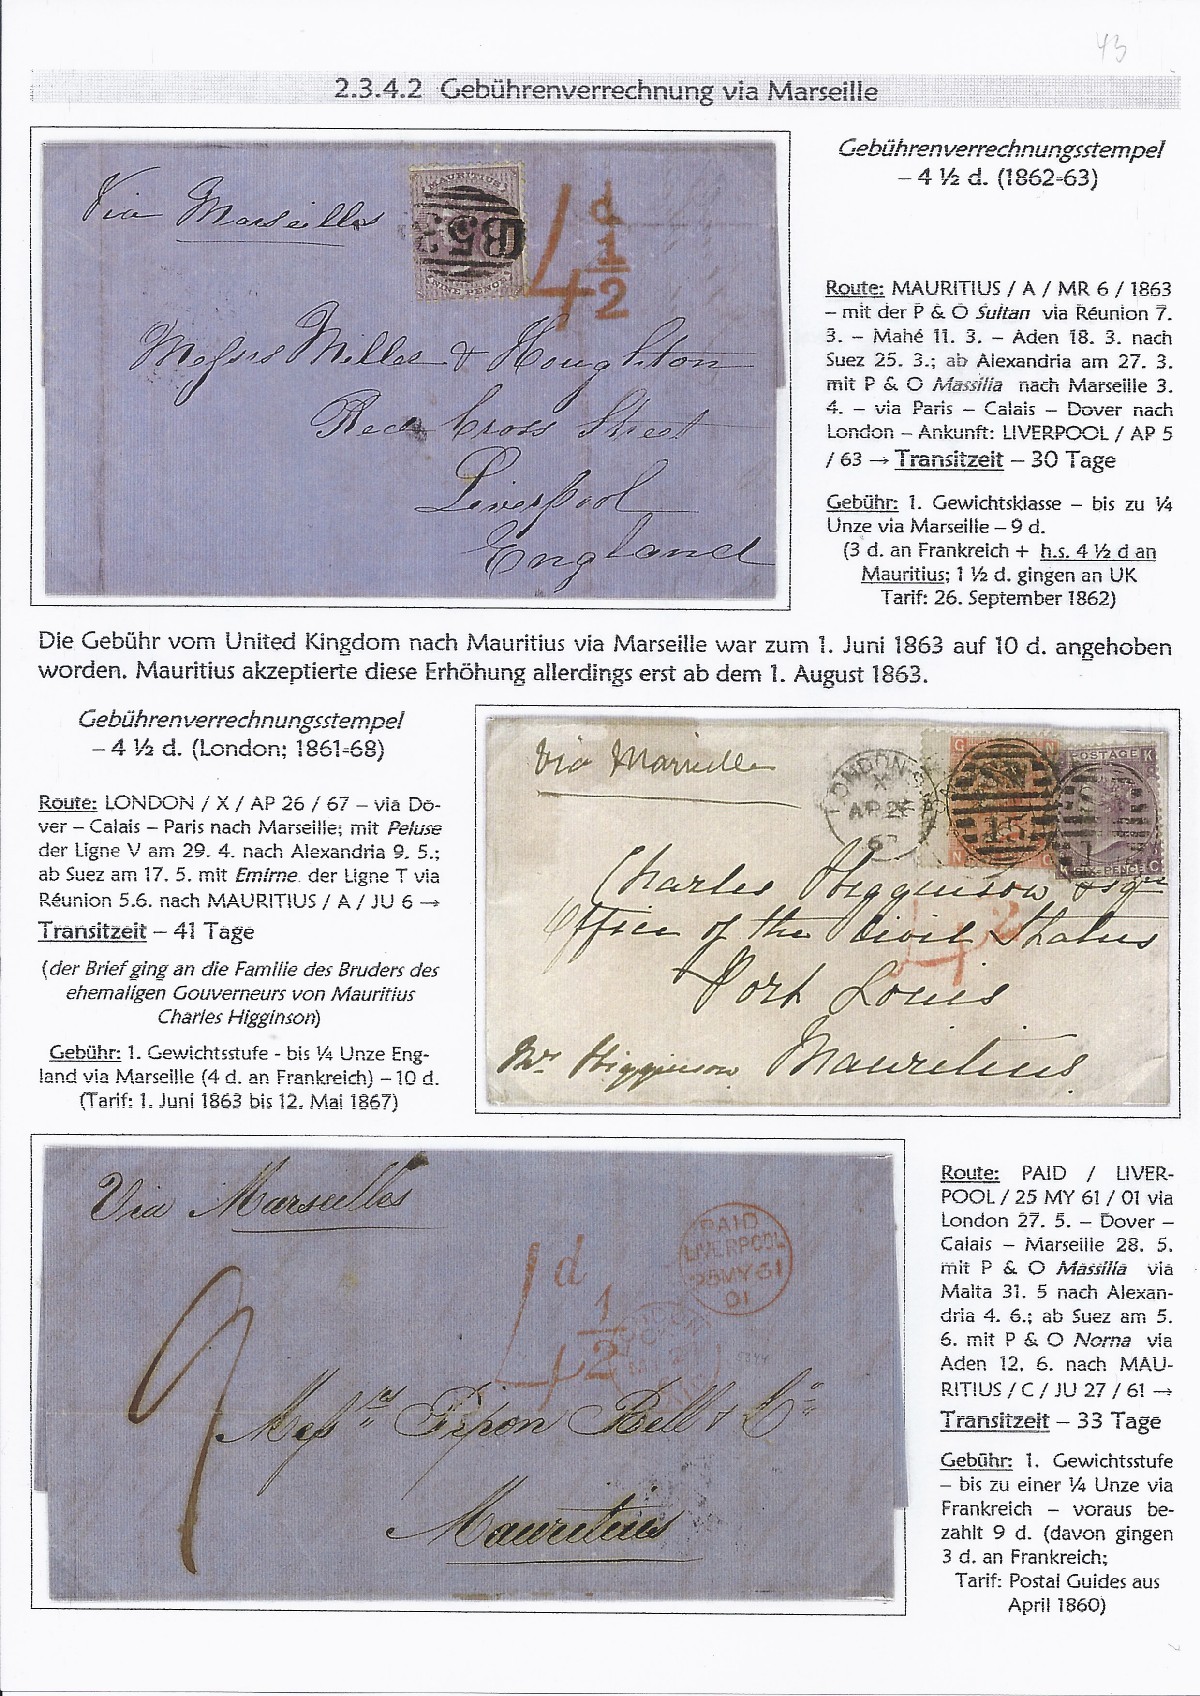 43
2.3.4.2 Gebührenverrechnung via Marseille
Via Marseilles
MAURITIUS
B53
NINE PENCE
4 d 1/2
Messrs Miller & Houghton
Red Cross Street
Liverpool
England
Gebührenverrechnungsstempel
– 4 ½ d. (1862-63)
Route: MAURITIUS / A / MR 6 / 1863
– mit der P & O Sultan via Réunion 7.
3. – Mahé 11. 3. – Aden 18. 3. nach
Suez 25. 3.; ab Alexandria am 27. 3.
mit P & O Massilia nach Marseille 3.
4. – via Paris – Calais – Dover nach
London – Ankunft: LIVERPOOL / AP 5
/ 63 → Transitzeit – 30 Tage
Gebühr: 1. Gewichtsklasse – bis zu ¼
Unze via Marseille – 9 d.
(3 d. an Frankreich + h.s. 4 ½ d an
Mauritius; 1 ½ d. gingen an UK
Tarif: 26. September 1862)
Die Gebühr vom United Kingdom nach Mauritius via Marseille war zum 1. Juni 1863 auf 10 d. angehoben
worden. Mauritius akzeptierte diese Erhöhung allerdings erst ab dem 1. August 1863.
Gebührenverrechnungsstempel
– 4 ½ d. (London; 1861-68)
Route: LONDON / X / AP 26 / 67 – via Do-
ver – Calais – Paris nach Marseille; mit Peluse
der Ligne V am 29. 4. nach Alexandria 9. 5.;
ab Suez am 17. 5. mit Emirne der Ligne T via
Réunion 5.6. nach MAURITIUS / A / JU 6 →
Transitzeit – 41 Tage
(der Brief ging an die Familie des Bruders des
ehemaligen Gouverneurs von Mauritius
Charles Higginson)
Gebühr: 1. Gewichtsstufe - bis ¼ Unze Eng-
land via Marseille (4 d. an Frankreich) – 10 d.
(Tarif: 1. Juni 1863 bis 12. Mai 1867)
Via Marseille
LONDON
X
AP 26
6
G N
N G
15
POSTAGE K
K SIX-PENCE C
Charles Higginson Esqre
Office of the Civil Status
4
Port Louis
Mrs Higginson Mauritius
Via Marseilles
PAID
LIVERPOOL
25 MY 61
01
4 d 1/2
9
Messrs Pipon Bell & Co
Mauritius
Route: PAID / LIVER-
POOL / 25 MY 61 / 01 via
London 27. 5. – Dover –
Calais – Marseille 28. 5.
mit P & O Massilia via
Malta 31. 5 nach Alexan-
dria 4. 6.; ab Suez am 5.
6. mit P & O Norna via
Aden 12. 6. nach MAU-
RITIUS / C / JU 27 / 61 →
Transitzeit – 33 Tage
Gebühr: 1. Gewichtsstufe
– bis zu einer ¼ Unze via
Frankreich – voraus be-
zahlt 9 d. (davon gingen
3 d. an Frankreich;
Tarif: Postal Guides aus
April 1860)